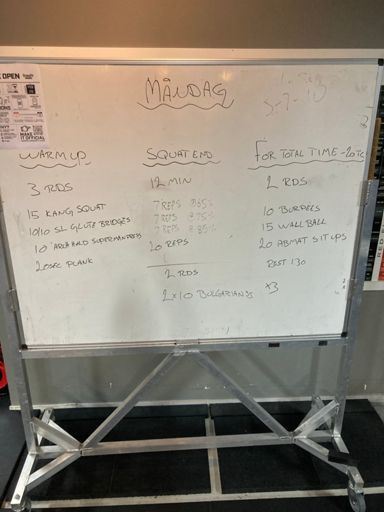 OPEN
MAKE
IT OFFICIAL
MÅNDAG
WARM UP
3 RDS
15 KANG SQUAT
10/10 SL GLUTE BRIDGES
10 ARCH HOLD SUPERMAN REPS
20SEC PLANK
SQUAT EMD
12 MIN
7 REPS @65%
7 REPS @75%
7 REPS @85%
20 REPS
2 RDS
2x10 BULGARIANS
FOR TOTAL TIME - 20TC
2 RDS
10 BURPEES
15 WALL BALL
20 ABMAT SIT UPS
REST 1:30
x3